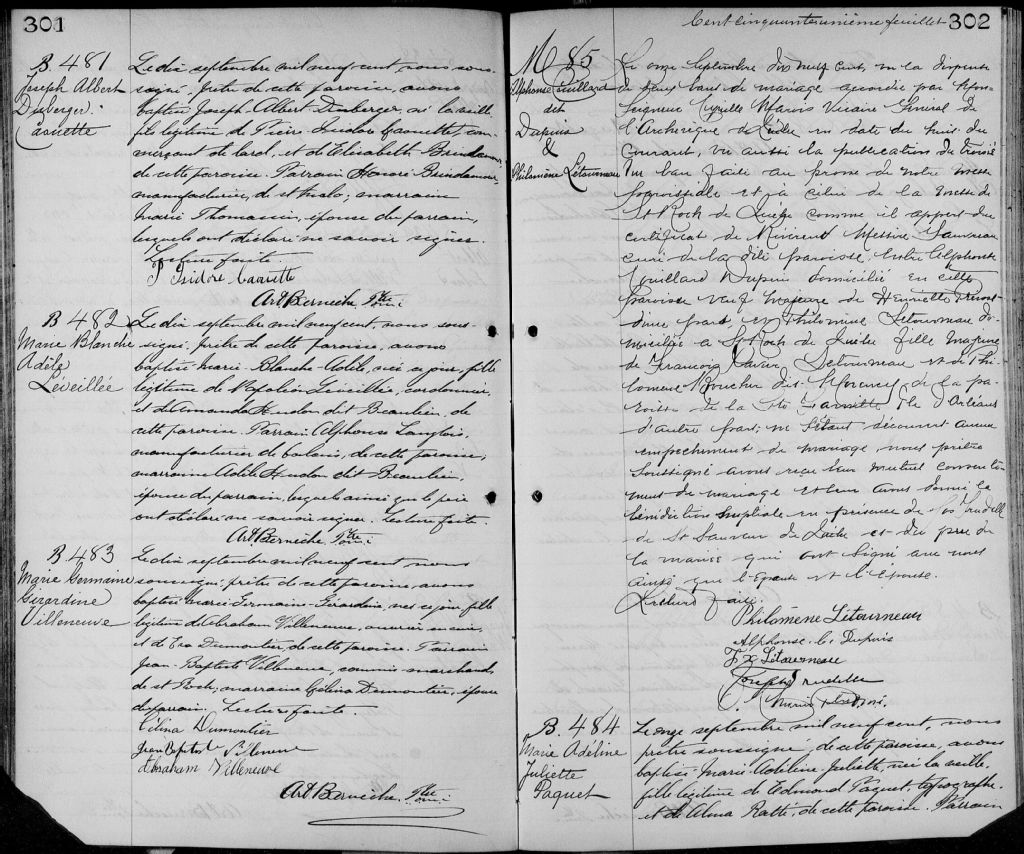 301
B. 481
Joseph Albert
Duberger
Carrette
Le dix septembre mil neuf cent, nous sous-
signé, prêtre de cette paroisse, avons
baptisé Joseph Albert Duberger, né la veille,
fils légitime de Pierre Isidore Carrette, com-
merçant de tarol, et d'Elisabeth Brindamour,
de cette paroisse. Parrain Honoré Brindamour,
manufacturier, de St Malo; marraine
Marie Thomassin, épouse du parrain,
lesquels ont déclaré ne savoir signer.
Lecture faite.
P. Isidore Carrette
Art Bernèche Ptre
B. 482
Marie Blanche
Adèle
Léveillée
Le dix septembre mil neuf cent, nous sous-
signé, prêtre de cette paroisse, avons
baptisé Marie-Blanche-Adèle, née ce jour, fille
légitime de Napoléon Léveillée, cordonnier,
et d'Amanda Hudon dit Beaulieu, de
cette paroisse. Parrain Alphonse Langlois,
manufacturier de balais, de cette paroisse;
marraine Adèle Hudon dit Beaulieu,
épouse du parrain, lesquels ainsi que le père
ont déclaré ne savoir signer. Lecture faite.
Art Bernèche Ptre
B. 483
Marie Germaine
Gérardine
Villeneuve
Le dix septembre mil neuf cent nous
soussigné, prêtre de cette paroisse avons
baptisé Marie-Germaine-Gérardine, née ce jour, fille
légitime d'Abraham Villeneuve, ouvrier en cuir,
et d'Eva Dumontier, de cette paroisse. Parrain
Jean-Baptiste Villeneuve, commis marchand,
de St Roch; marraine Célina Dumontier, épouse
du parrain. Lecture faite.
Célina Dumontier
Jean Baptiste Villeneuve
Abraham Villeneuve
Art Bernèche Ptre
Cent cinquante unième feuillet
302
M 85
Alphonse Couillard
dit
Dupuis
&
Philomène Létourneau
Le onze Septembre dix neuf cent, vu la dispense
de deux bans de mariage accordée par Mon-
seigneur Cyrille Marois Vicaire Général de
l'Archevêque de Québec en date du huit du
courant, vu aussi la publication du troisiè
me ban faite au prône de notre messe
paroissiale et à celui de la messe de
St Roch de Québec comme il appert du
certificat de Révérend Messire Gauvreau
curé de la dite paroisse, entre Alphonse
Couillard Dupuis domicilié en cette
paroisse veuf majeur de Henriette Prévost
d'une part, et Philomène Létourneau do-
miciliée à St Roch de Québec fille majeure
de François Xavier Létourneau et de Phi-
lomène Boucher dit Morency de la pa-
roisse de la Ste Famille Ile d'Orléans
d'autre part; ne s'étant découvert aucun
empêchement de mariage, nous prêtre
Soussigné avons reçu leur mutuel consente
ment de mariage et leur avons donné la
bénédiction nuptiale en présence de Jos Trudelle
de St Sauveur de Québec et du père de
la mariée qui ont signé avec nous
ainsi que l'Epoux et l'Epouse.
Lecture faite.
Philomène Létourneau
Alphonse C. Dupuis
F X Létourneau
Joseph Trudelle
B. 484
Marie Adéline
Juliette
Paquet
Le onze septembre mil neuf cent, nous
prêtre soussigné, de cette paroisse, avons
baptisé Marie Adéline Juliette, née la veille,
fille légitime de Edmond Paquet, typographe,
et de Alma Ratté, de cette paroisse. Parrain